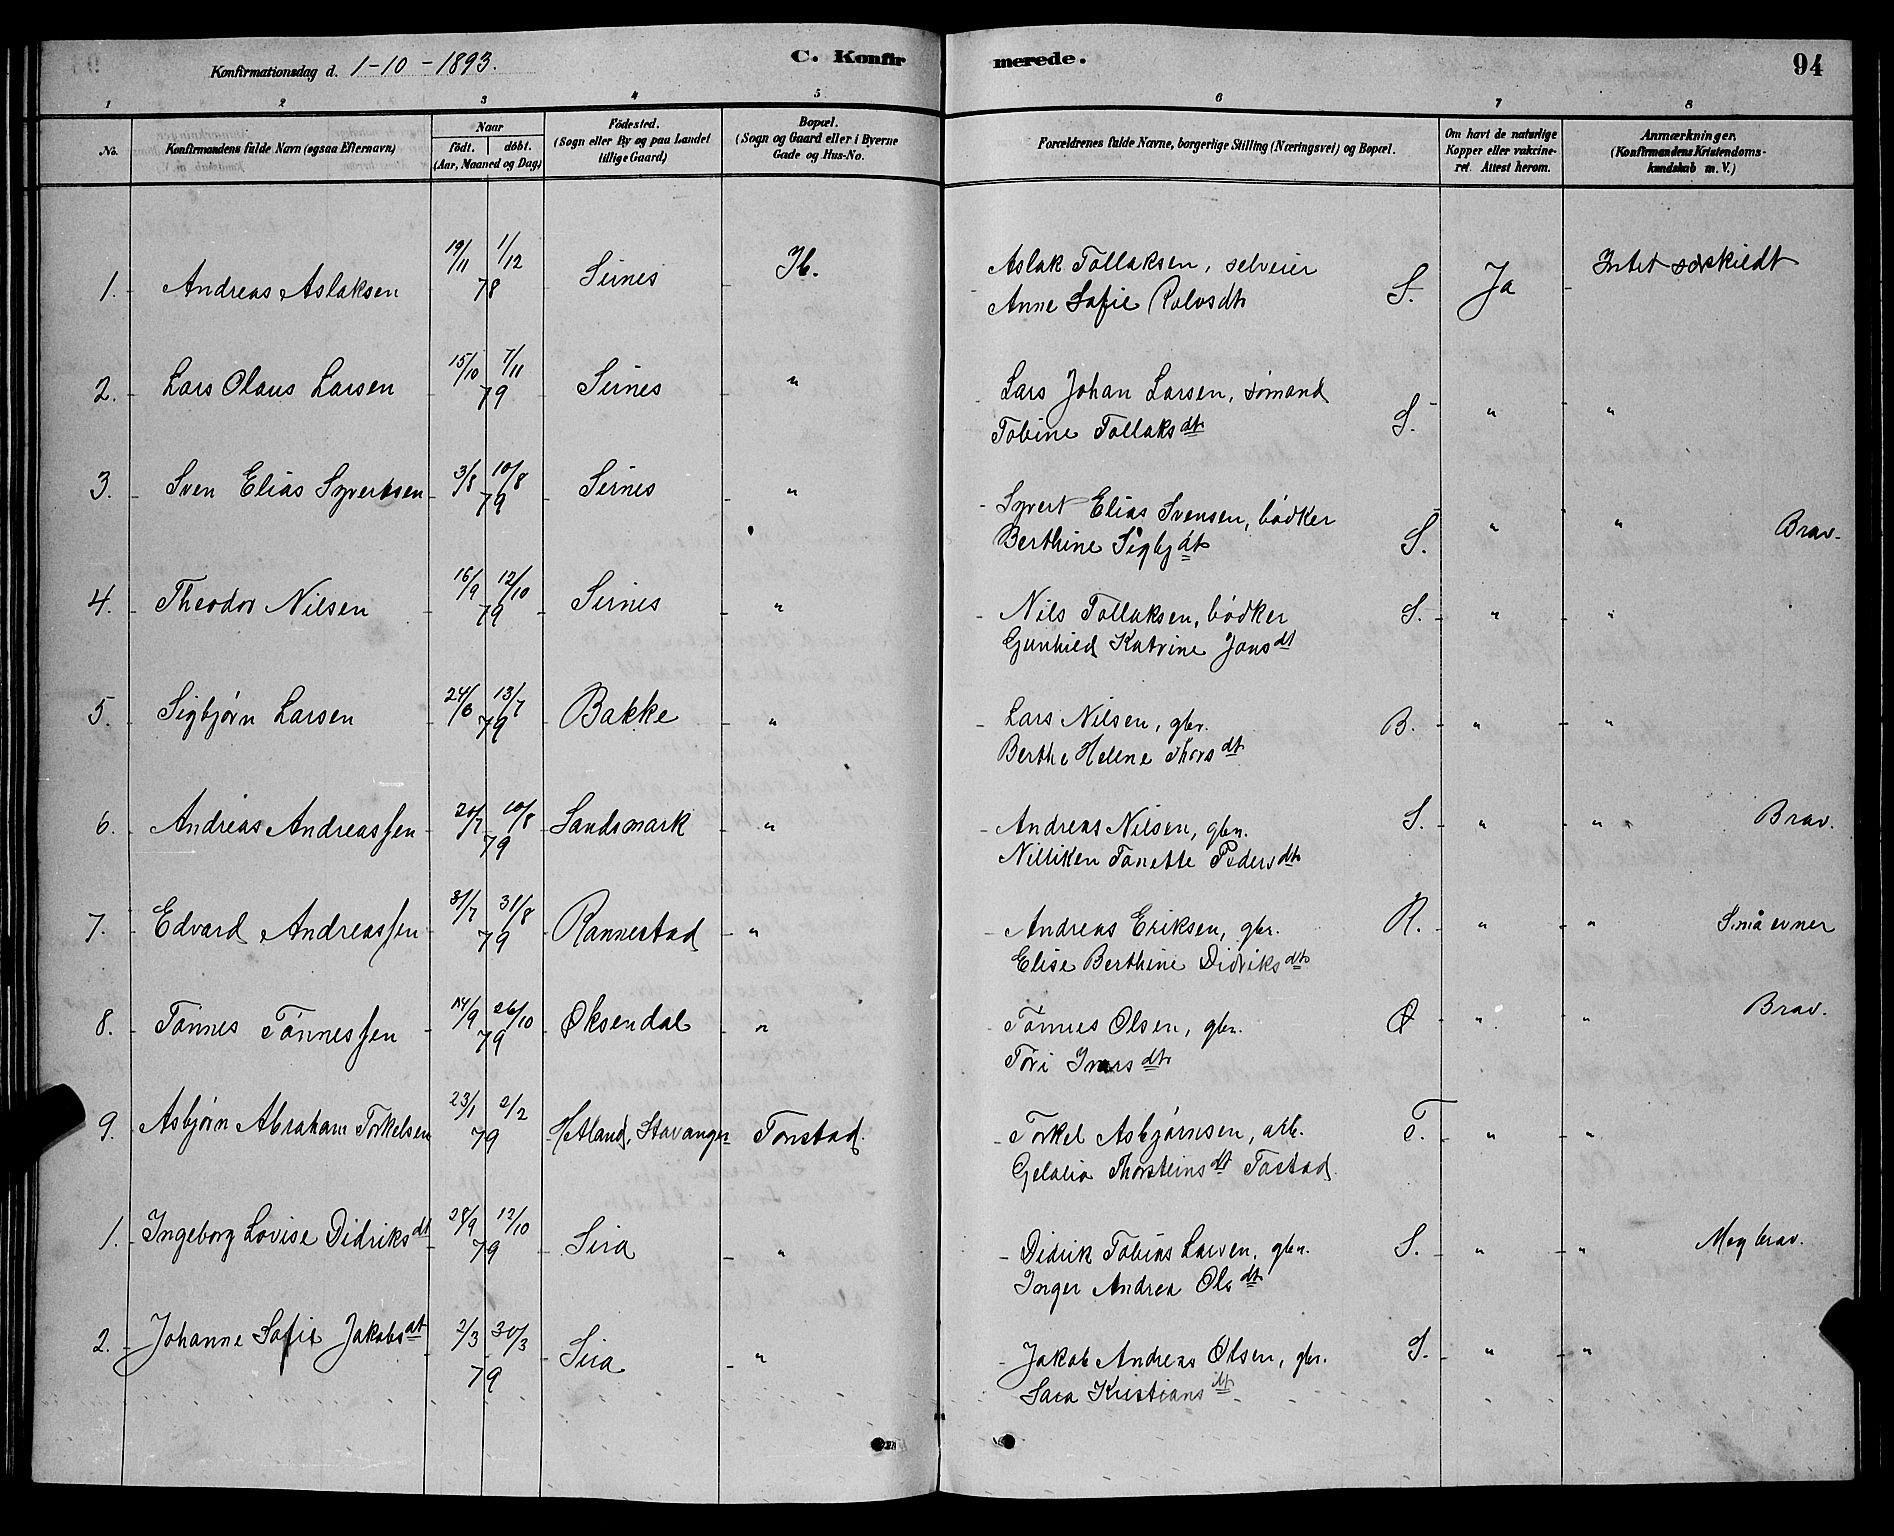 Konfirmationsdag d. 1-10-1893.
C. Konfirmerede.
94
1 2 3 4 5 6 7 8
No.
Konfirmandens fulde Navn (ogsaa Efternavn)
Naar
født. døbt.
(Aar, Maaned og Dag)
Fødested.
(Sogn eller By og paa Landet
tillige Gaard)
Bopæl.
(Sogn og Gaard eller i Byerne
Gade og Hus-No.
Forældrenes fulde Navne, borgerlige Stilling (Næringsvei) og Bopæl.
Om havt de naturlige
Kopper eller vakcine-
ret. Attest herom.
Anmærkninger.
(Konfirmandens Kristendoms-
kundskab m. V.)
1. Andreas Aslaksen 19/11 1/12 78 Sirnes Ib. Aslak Tollaksen, selveier
Anne Sofie Rolvsdt S. Ja Intet sørskildt
2. Lars Olaus Larsen 15/10 7/11 79 Sirnes " Lars Johan Larsen, sømand
Tobine Tollaksdt S. " "
3. Sven Elias Syvertsen 3/8 10/8 79 Sirnes " Syvert Elias Svensen, bødker
Berthine Sigbjdt S. " " Brav.
4. Theodor Nilsen 16/9 12/10 79 Sirnes " Nils Tollaksen, bødker S. " "
Gunhild Katrine Jonsdt
5. Sigbjørn Larsen 24/6 13/7 79 Bakke " Lars Nilsen, gbr. B. " "
Berthe Helene Thorsdt
6. Andreas Andreassen 20/7 10/8 79 Sandsmark " Andreas Nilsen, gbr. S. " " Brav.
Nilliken Tonette Pedersdt
7. Edvard Andreassen 31/7 31/8 79 Rannestad " Andreas Eriksen, gbr. R. " " Små evner
Elise Berthine Didriksdt
8. Tønnes Tønnessen 14/9 26/10 79 Øksendal " Tønnes Olsen, gbr. Ø " " Brav.
Tori Ivarsdt
9. Asbjørn Abraham Torkelsen 23/1 2/2 79 Hetland, Stavanger Tonstad. Torkel Asbjørnsen, arb. T. " "
Thorsteinsdt Tastad
1. Ingeborg Lovise Didriksdt 28/9 12/10 79 Sira " Didrik Tobias Larsen, gbr. S. " " Meg brav.
Inger Andrea Olsdt
2. Johanne Sofie Jakobsdt 2/3 30/3 79 Sira " Jakob Andreas Olsen, gbr. S. " "
Sara Kristiansdt